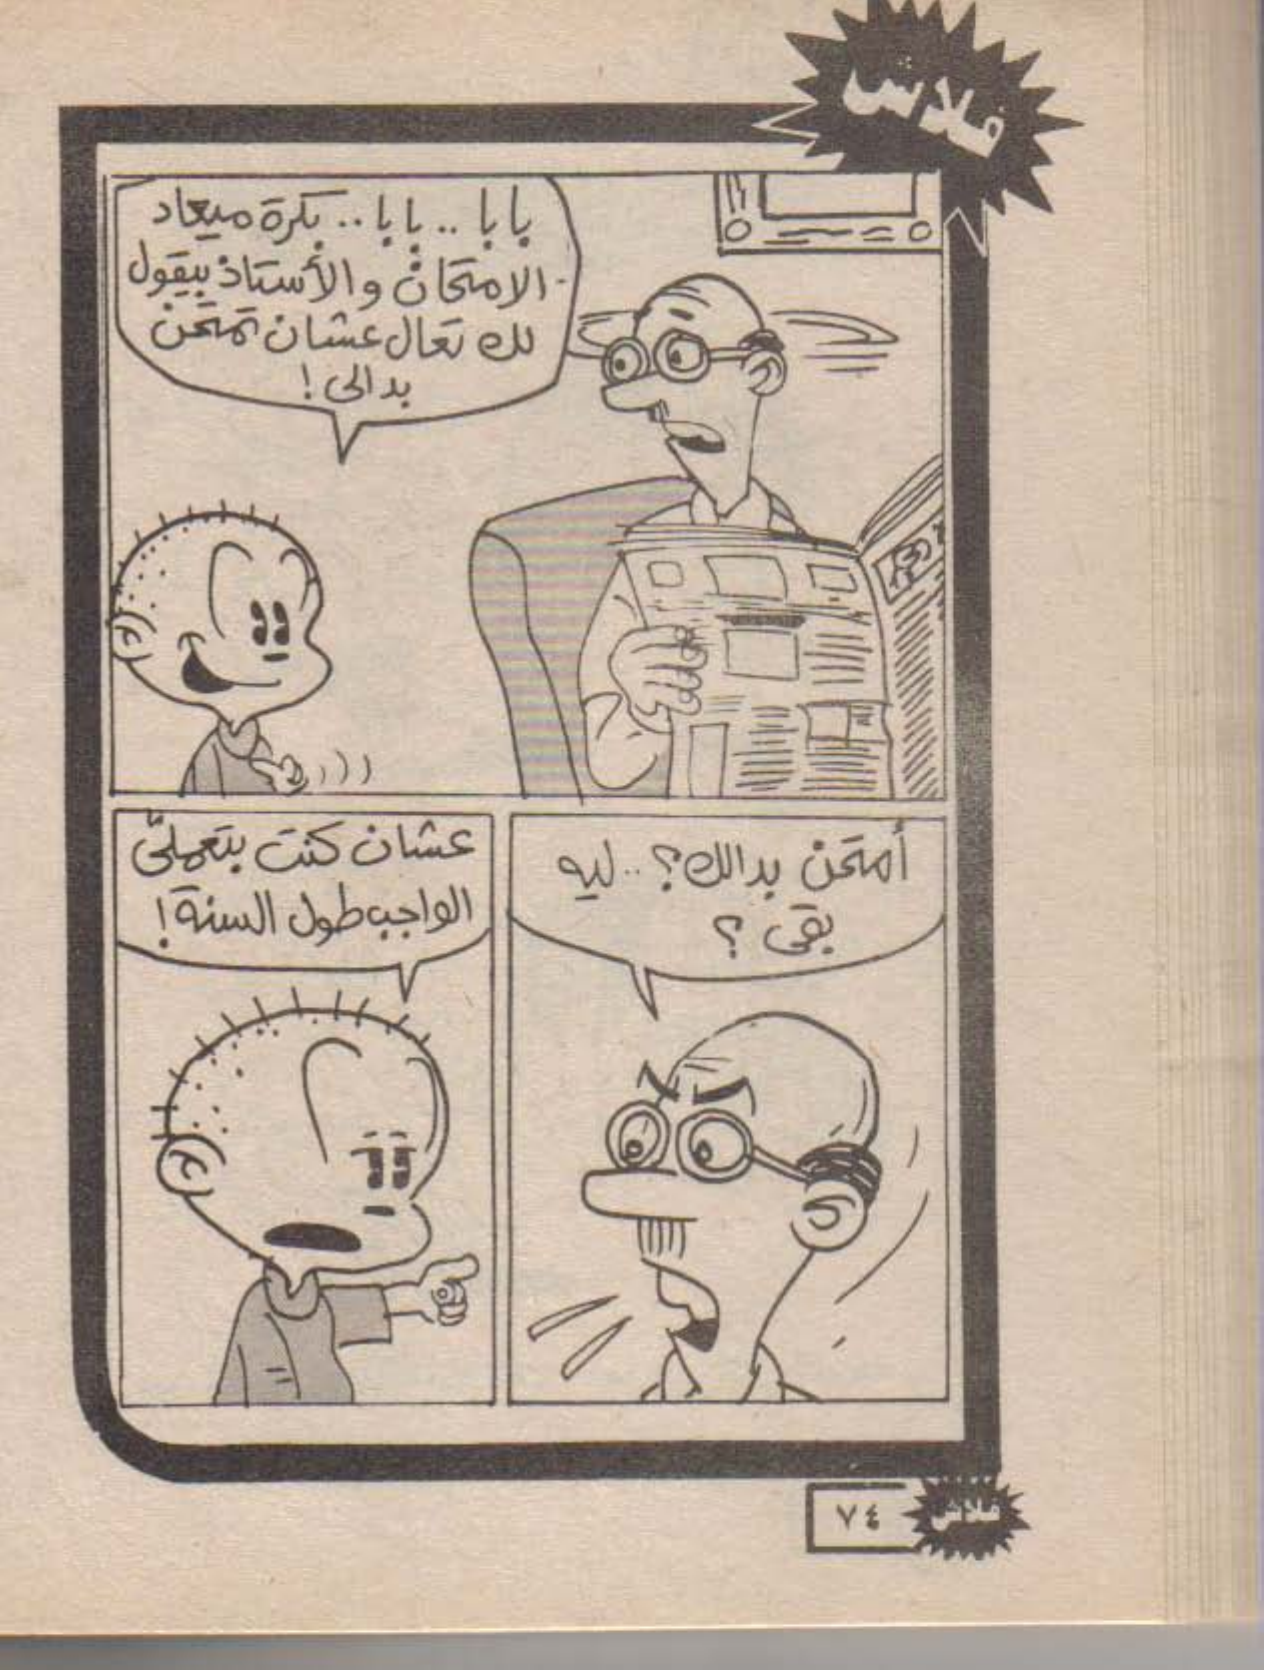 فلاش
بابا .. بابا .. بكرة ميعاد
الامتحان والأستاذ بيقول
لك تعال عشان تمتحن
بدالى !
أمتحن بدالك؟ .. ليه
بقى ؟
عشان كنت بتعملى
الواجب طول السنة !
٧٤
فلاش